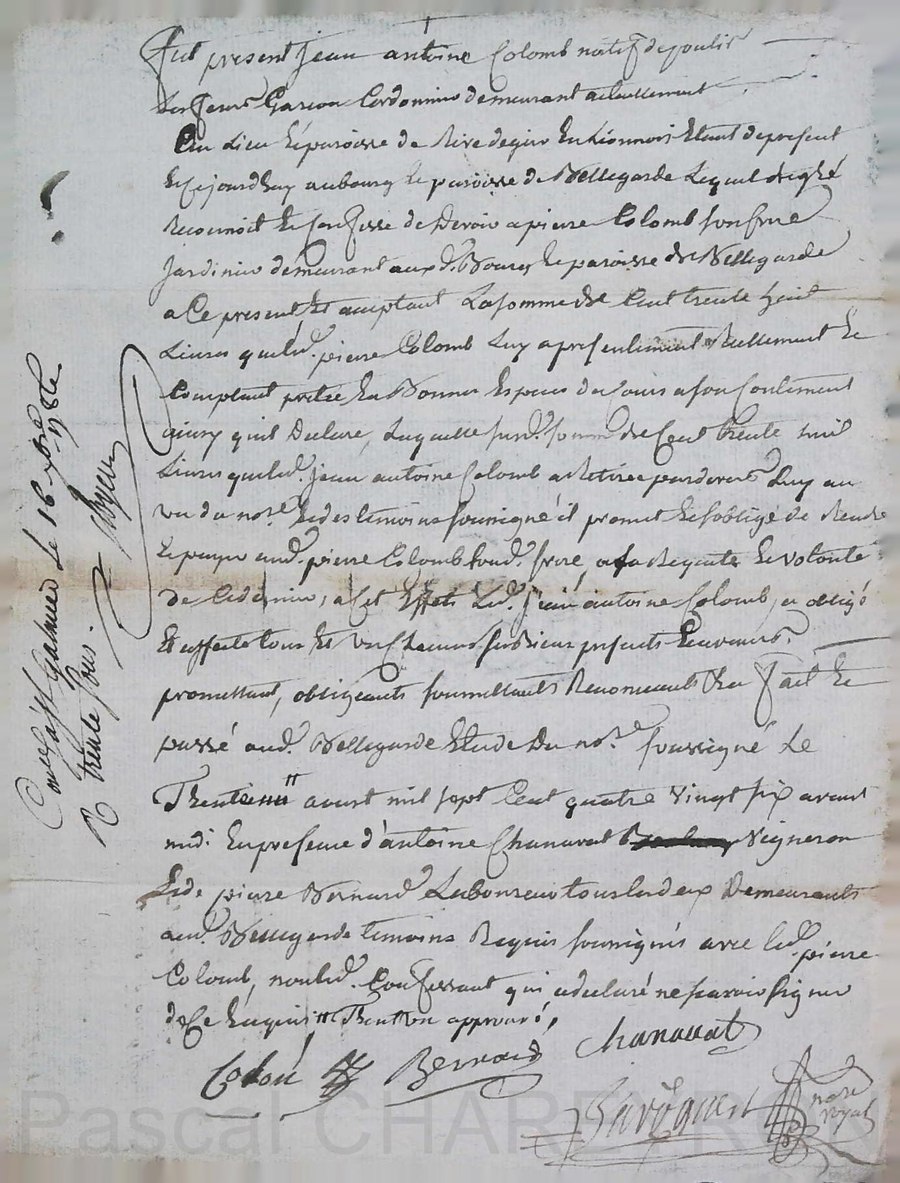 Fut present Jean antoine Colomb natif de poulis
les feurs Garcon Cordonnier demeurant actuellement
Au Lieu & paroisse de Rivedegier En Lionnois Etant de present
Ce jourdhuy au bourg & paroisse de Bellegarde Lequel de gré
Reconnoit & Confesse de Devoir a pierre Colomb son frere
Jardinier demeurant aux d. Bourg & paroisse de Bellegarde
a Ce present Et acceptant La somme de Cent trente huit
Livres que led. pierre Colomb Luy a presentement Réellement &
Comptant pretée En Bonnes Especes de Cours a son Contentement
ainsy qu'il Declare, Laquelle susd. somme de Cent trente huit
Livres que led. Jean antoine Colomb a Retirée pardevers Luy au
vu du no.re & des temoins soussigné il promet & s'oblige de Rendre
& payer aud. pierre Colomb sond. frere a sa Requete & volonté
de Ce dernier, a Cet Effet Led. Jean antoine Colomb, a obligé
Et affecté tous Et un Chacuns ses Biens presents & avenirs,
promettant, obligeants soumettants Renonceants &a fait &
passé aud. Bellegarde Etude Du no.re soussigné Le
Trente aoust mil sept Cent quatre vingt six avant
midi En presence d'antoine Chanavat Vigneron
& de pierre Bernard Laboureur tous les deux Demeurants
aud. Bellegarde temoins Requis soussignés avec led. pierre
Colomb, non led. Confessant qui a declaré ne savoir signer
de Ce Enquis Trente approuvé,
Colon Bernard Chanavat
no.re
royal
Controllé a St Galmier Le 16 7bre 1786
R trente sous.
Pascal CHAREYRON